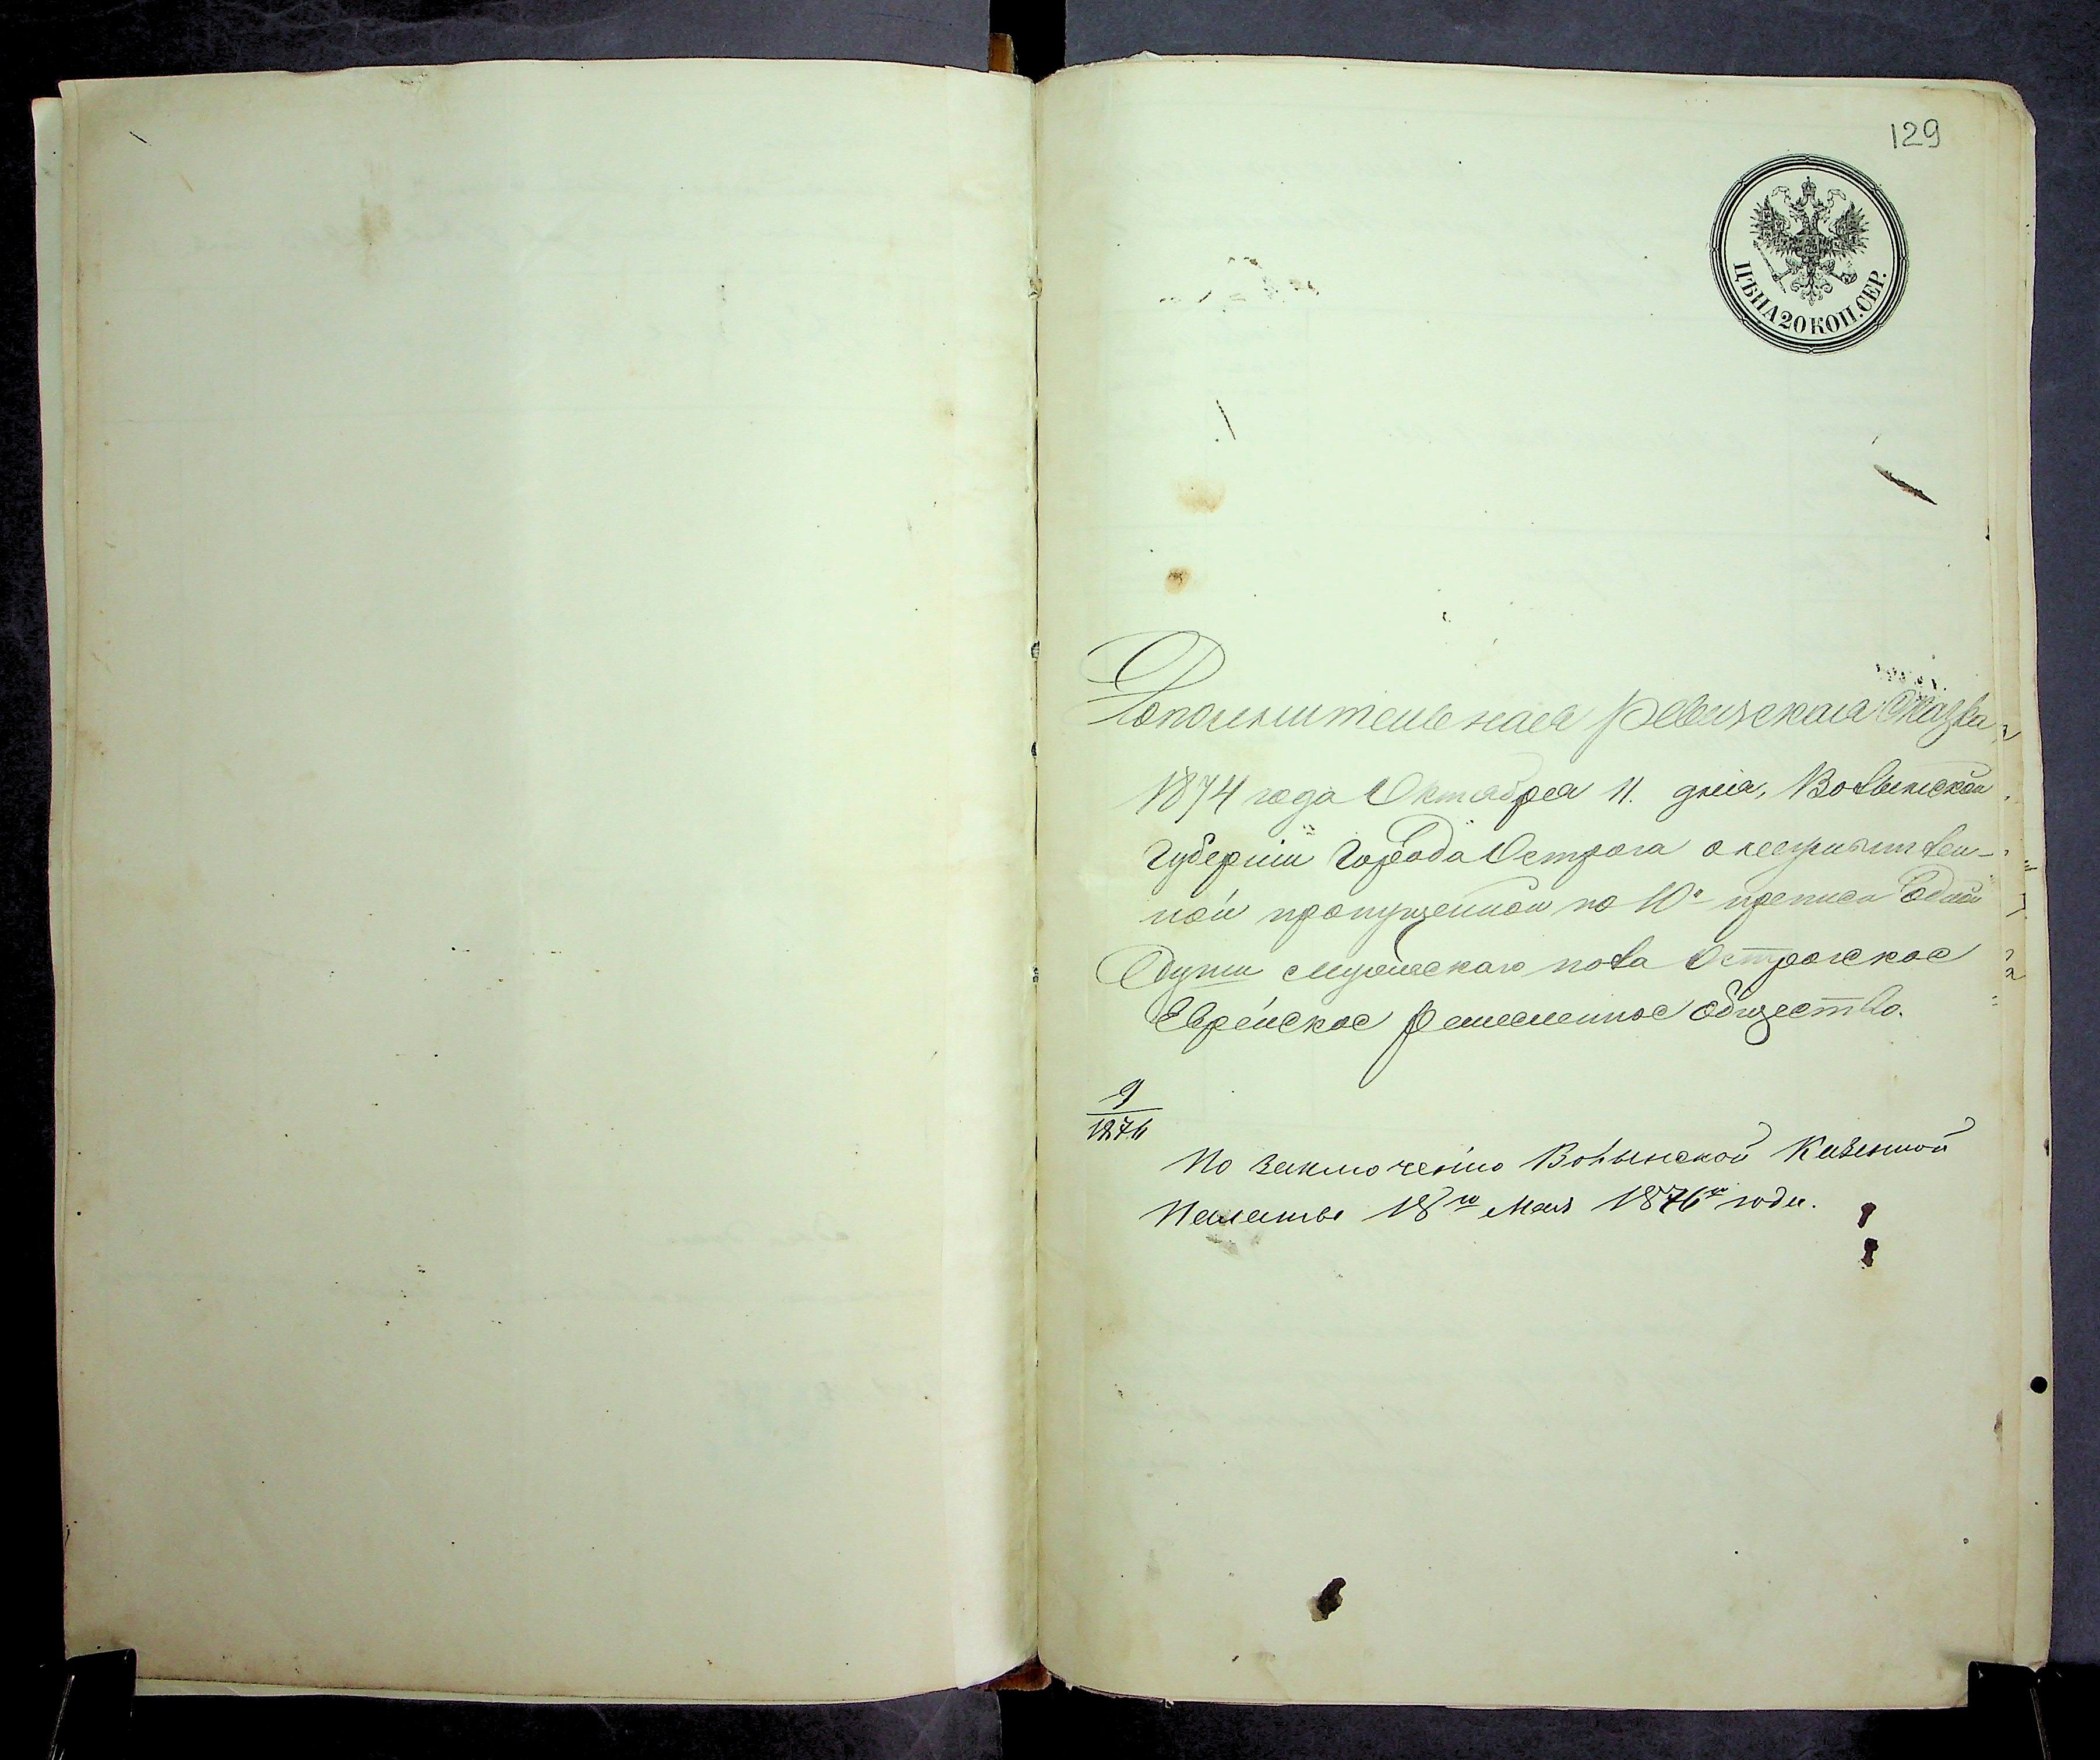 129
ЦѢНА 20 КОП. СЕР.
Дополнительная ревизская Сказка
1874 года Октября 11. дня, Волынской
Губернiи Города Острога о
ной пропущенной по 10й прописи Одной
Души мужескаго пола Острожское
Еврейское ремесленное общество.
9
1876
По заключенiю Волынской Казенной
Палаты 18го Мая 1876го года.